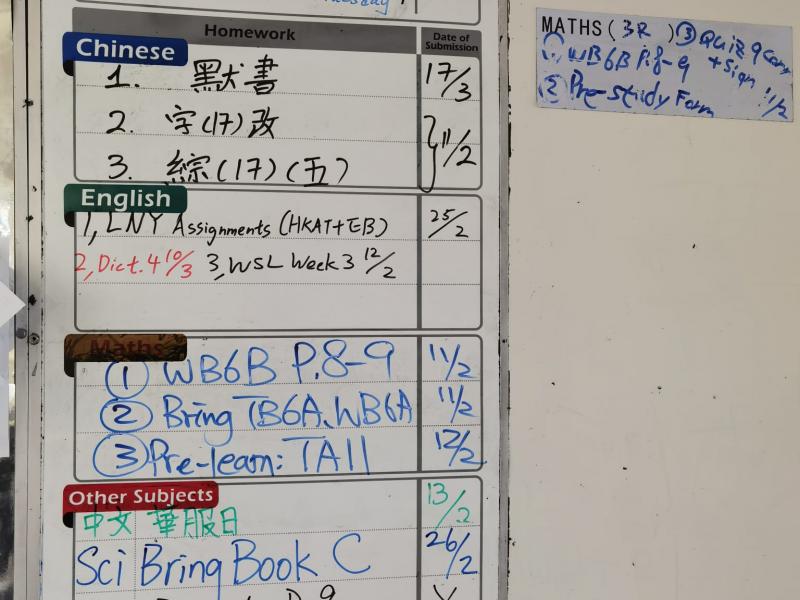 Homework
Date of Submission
Chinese
1. 默書 17/3
2. 字(17)改
3. 綜(17)(五) } 11/2
English
1, LNY Assignments (HKAT+EB) 25/2
2, Dict. 4 10/3 3, WSL Week 3 12/2
Maths
① WB6B P.8-9 11/2
② Bring TB6A, WB6A 11/2
③ Pre-learn: TA11 12/2
Other Subjects
中文 華服日 13/2
Sci Bring Book C 26/2
MATHS (3R) ③ Quiz 9 Corr
① WB6B P.8-9 + Sign
② Pre-study Form 11/2